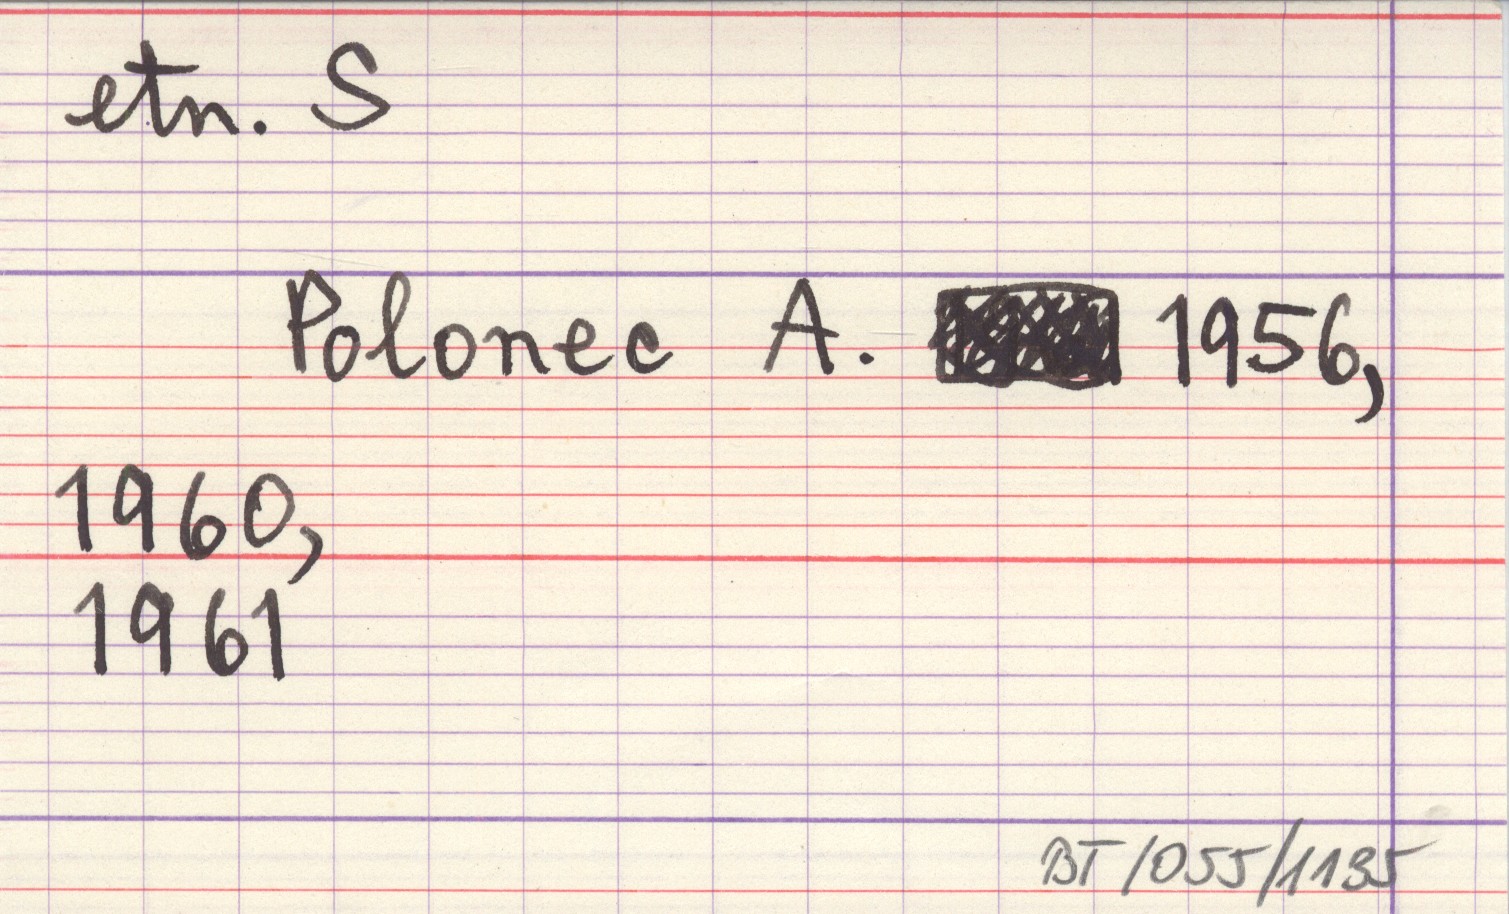 etn. S
Polonec A. 1956,
1960,
1961
BT/055/1135